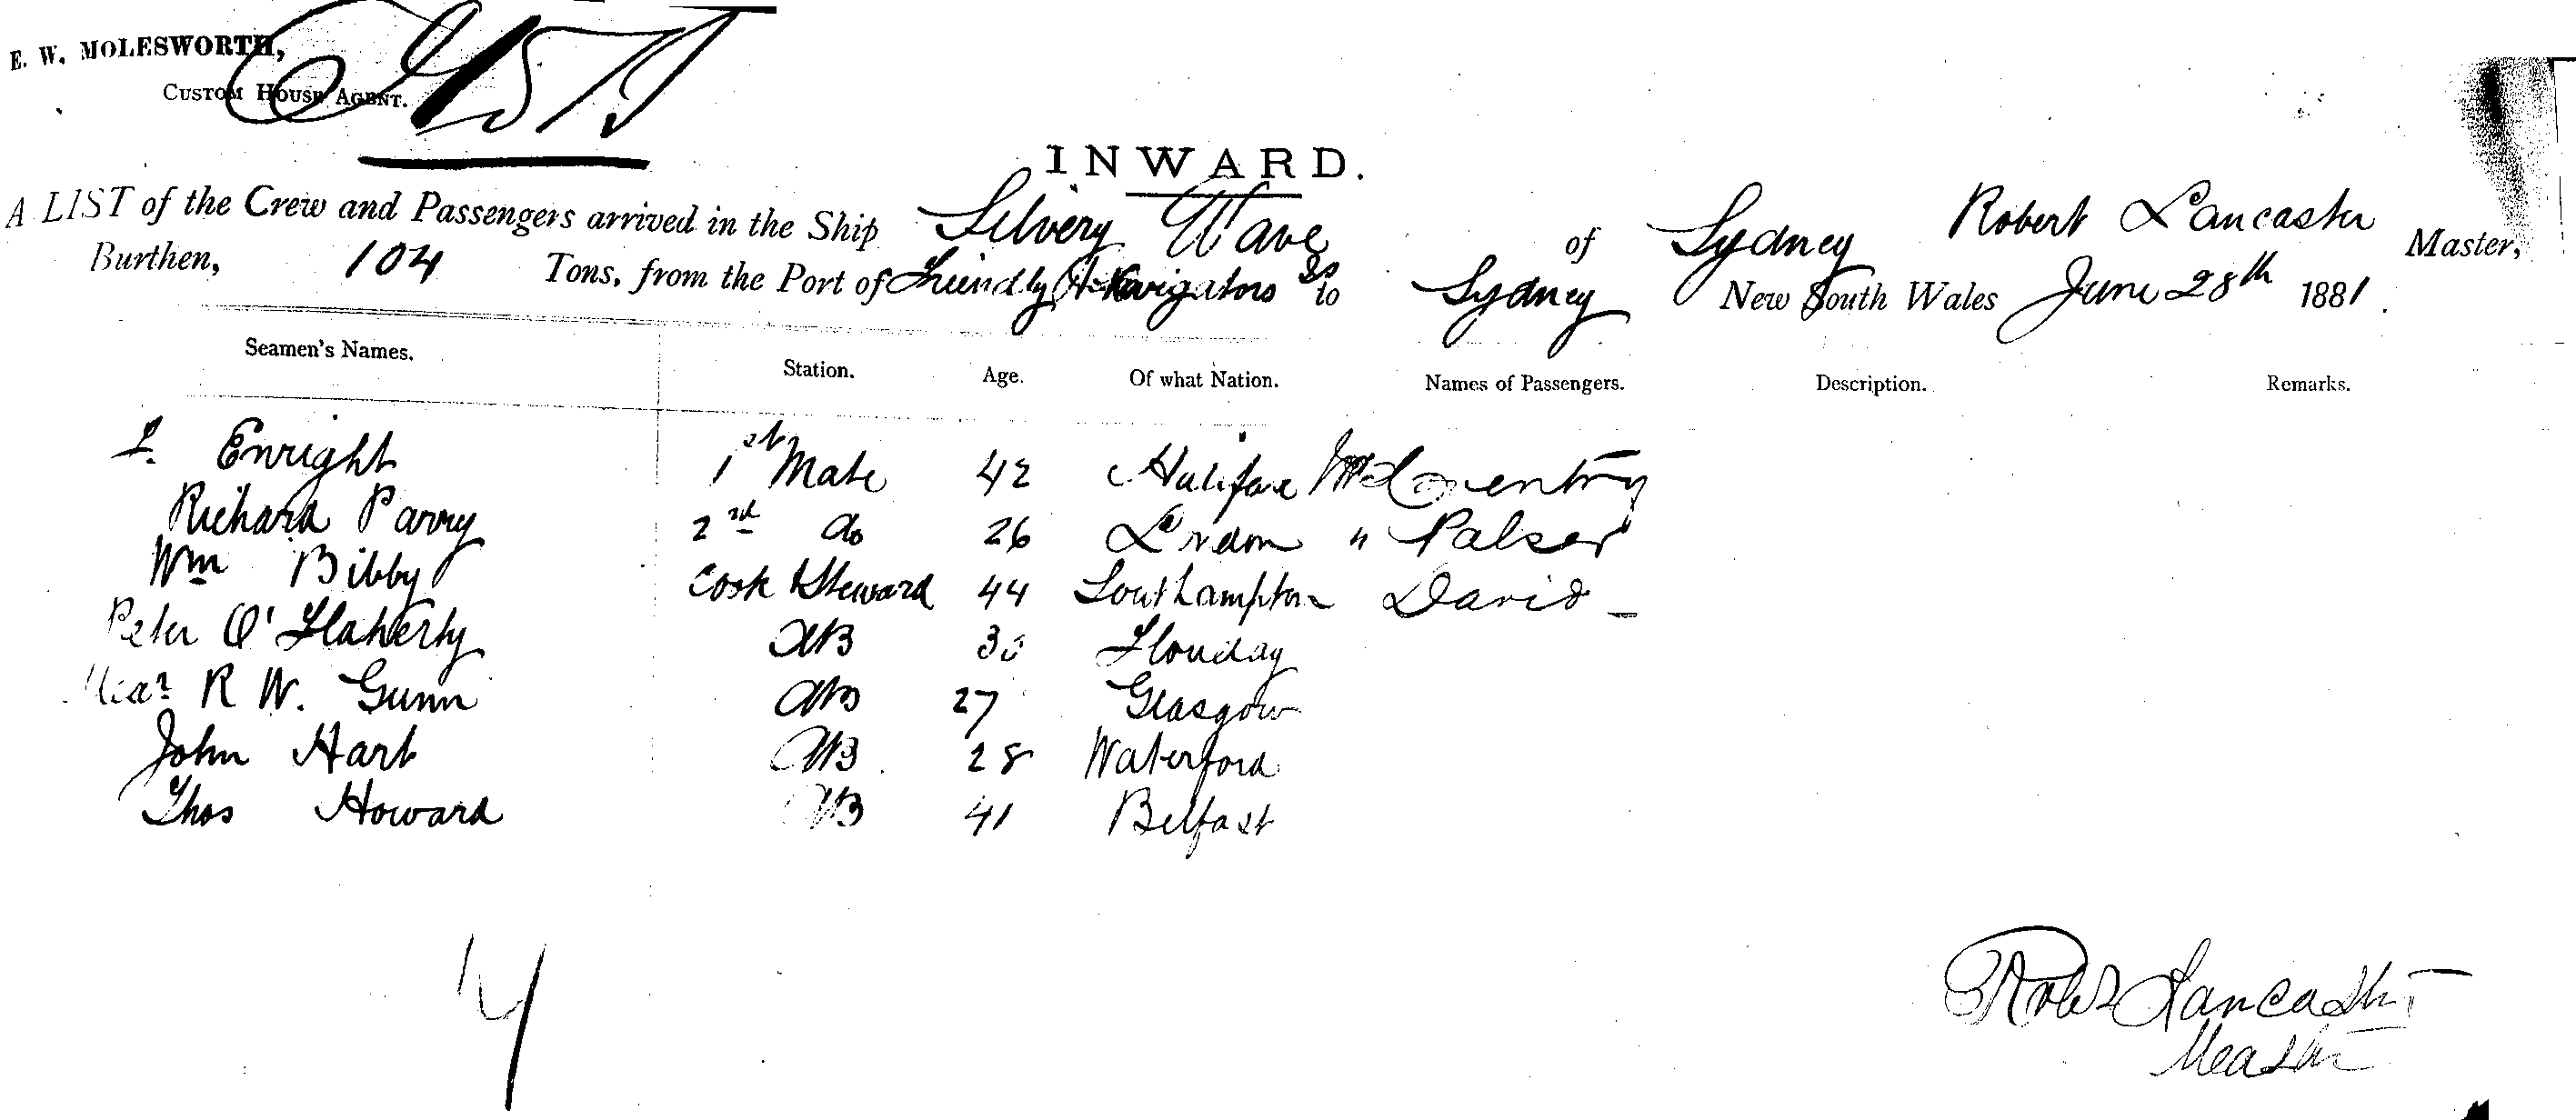 E. W. MOLESWORTH,
CUSTOM HOUSE AGENT.
INWARD.
A LIST of the Crew and Passengers arrived in the Ship Silvery Wave of Sydney Robert Lancaster Master,
Burthen, 104 Tons, from the Port of Friendly & Navigators Is to Sydney New South Wales June 28th 1881.
Seamen's Names. Station. Age. Of what Nation. Names of Passengers. Description. Remarks.
Enright 1st Mate 42 Halifax Mr Coventry
Richard Parry 2nd do 26 London " Palser
Wm Bibby Cook & Steward 44 Southampton David
Peter O'Flaherty AB Glouday
R W. Gunn AB 27 Glasgow
John Hart AB 28 Waterford
Thos Howard AB 41 Belfast
Robt Lancaster
Master